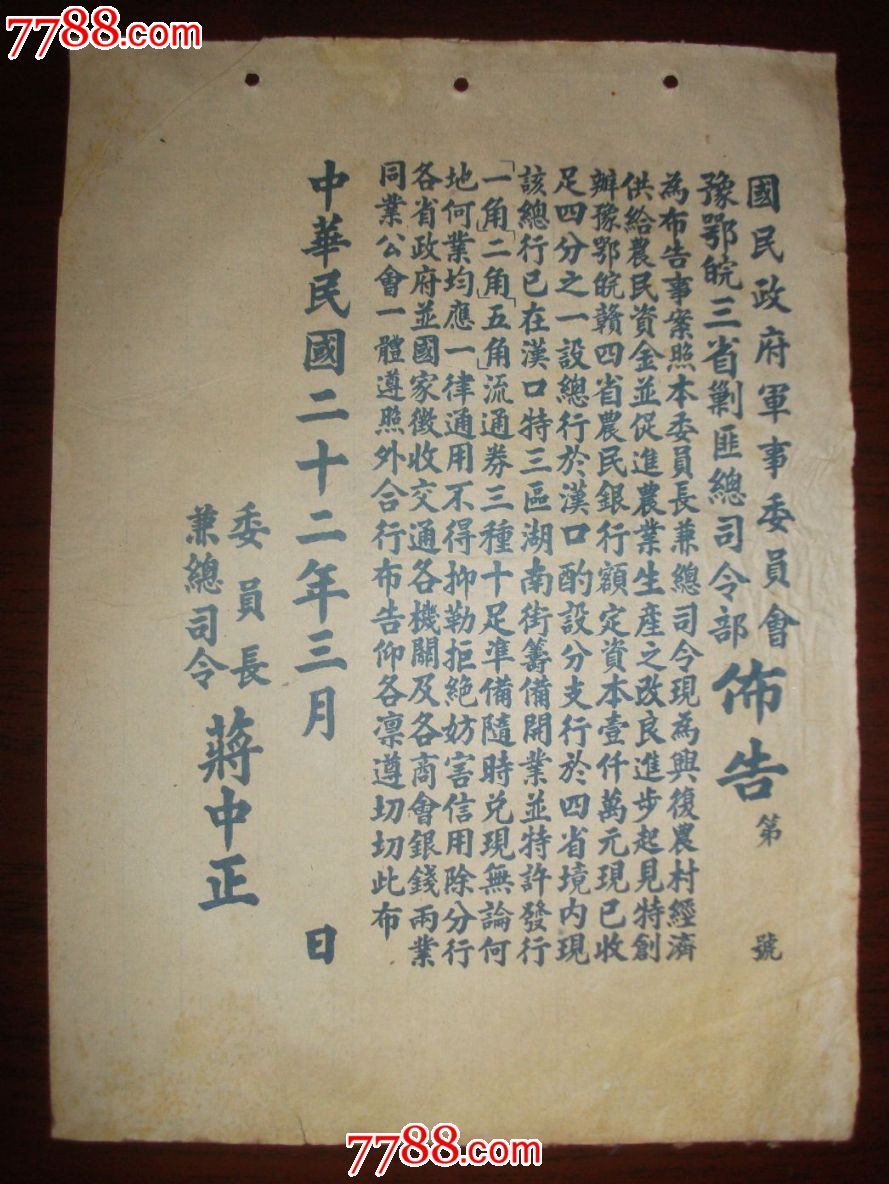 7788.com
國民政府軍事委員會
豫鄂皖三省剿匪總司令部
佈告
第 號
為布告事案照本委員長兼總司令現為興復農村經濟
供給農民資金並促進農業生產之改良進步起見特創
辦豫鄂皖贛四省農民銀行額定資本壹仟萬元現已收
足四分之一設總行於漢口酌設分支行於四省境內現
該總行已在漢口特三區湖南街籌備開業並特許發行
「一角」「二角」「五角」流通券三種十足準備隨時兌現無論何
地何業均應一律通用不得抑勒拒絕妨害信用除分行
各省政府並國家徵收交通各機關及各商會銀錢兩業
同業公會一體遵照外合行布告仰各凛遵切切此布
中華民國二十二年三月 日
委員長
兼總司令
蔣中正
7788.com